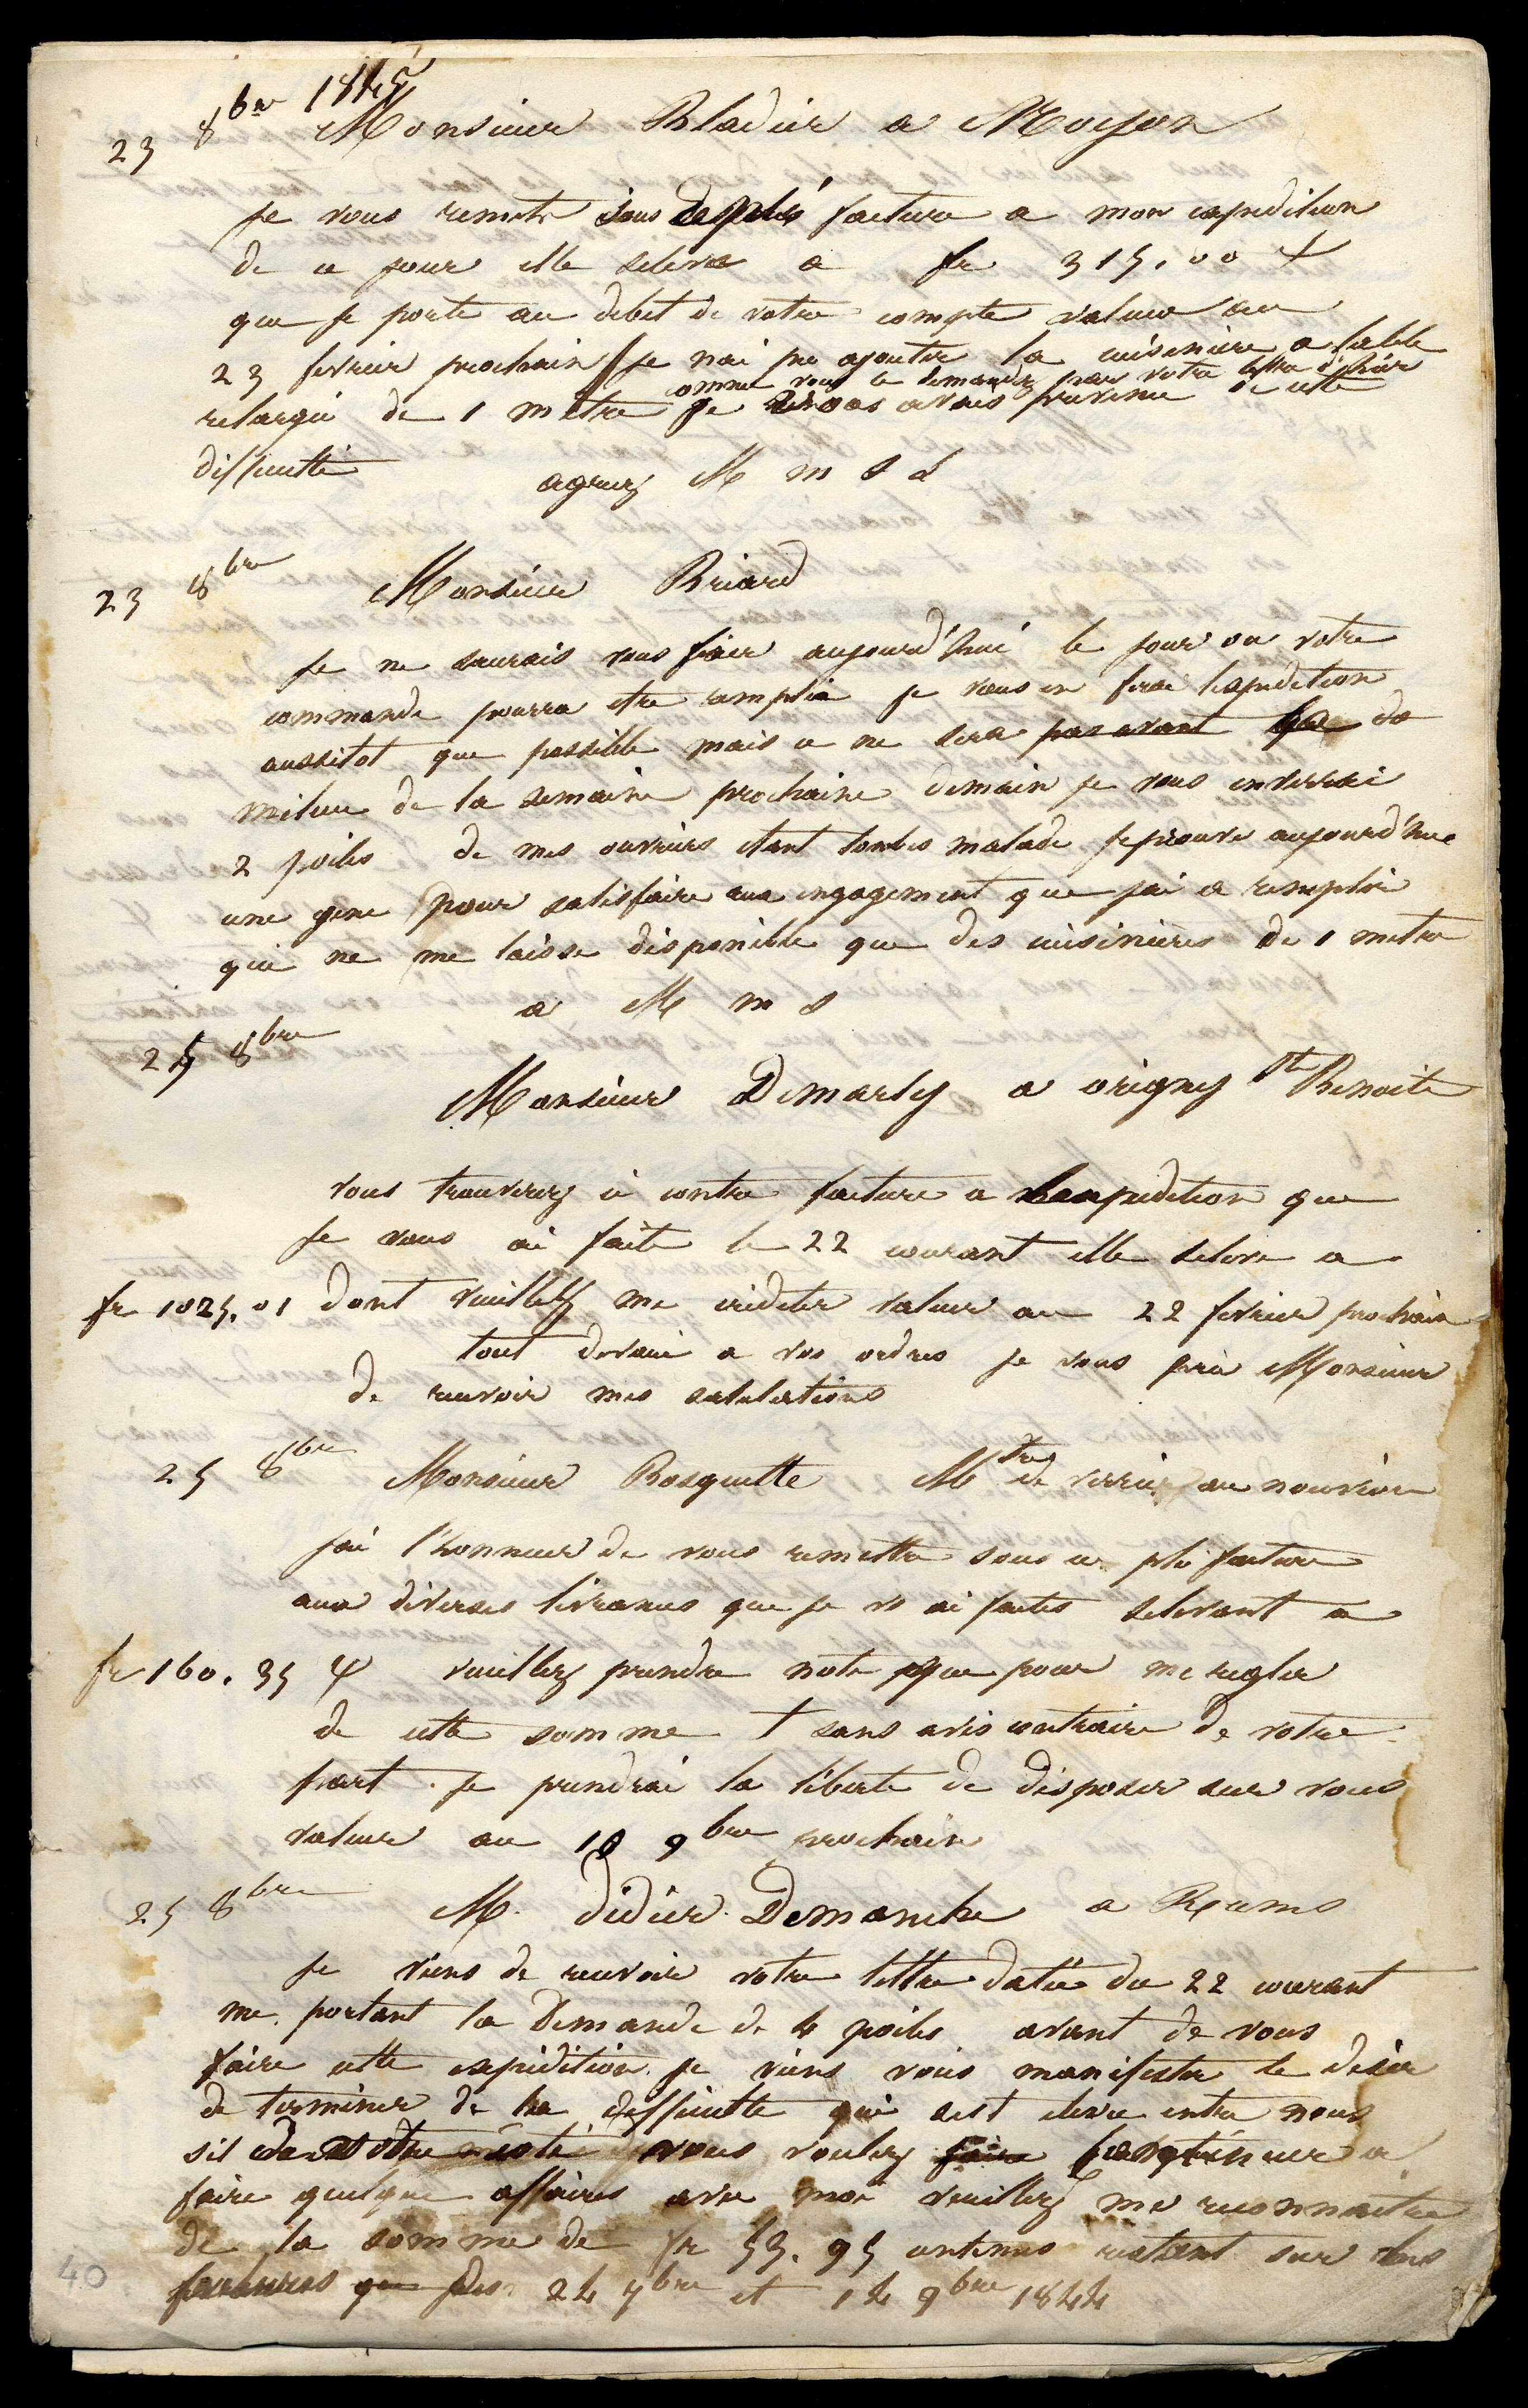 23 8bre 1845
Monsieur Bladier a Noyon
je vous remets sous ce pli facture a mon expedition
de ce jour elle seleve a fr 315.00
que je porte au debet de votre compte valeur au
23 fevrier prochain je nai pu ajouter la cuisiniere a sable
comme vous le demandez par votre lettre d'hier
relargie de 1 metre je vous avais prevenu de cette
difficulté
agreez M m s d
23 8bre Monsieur Briard
Je ne saurais vous fixer aujourd'hui le jour ou votre
commande pourra etre remplie je vous en ferai lexpedition
aussitot que possible mais ce ne sera pas avant le
milieu de la semaine prochaine demain je vous enverrai
2 poiles de mes ouvriers etant tombes malade jeprouve aujourd'hui
une gene pour satisfaire aux engagement que jai a remplir
qui ne me laisse disponible que des cuisinieres de 1 metre
a M m s
25 8bre
Monsieur Demarly a origny Ste Benoite
vous trouverez ci contre facture a lexpedition que
je vous ai faite le 22 courant elle seleve a
fr 1025.01 dont veuillez me crediter valeur au 22 fevrier prochain
tout devoué a vos ordres je vous prie Monsieur
de recevoir mes salutations
25 8bre Monsieur Bosquette Mtre de verrie au nouvion
jai l'honneur de vous remettre sous ce pli facture
aux diverses livrances que je vs ai faites selevant a
fr 160.35 veuillez prendre note que pour me regler
de cette somme sans avis contraire de votre
part je prendrai la liberte de disposer sur vous
valeur au 10 9bre prochain
25 8bre M. Didier Demanche a Reims
Je viens de recevoir votre lettre datée du 22 courant
me portant la Demande de 4 poiles avant de vous
faire cette expédition je viens vous manifester le desir
de terminer de la difficulte qui sest elevee entre nous
sil vous voulez continuer a
faire quelque affaires avec moi veuillez me reconnaitre
de la somme de fr 53.95 restant sur les
factures des 24 7bre et 14 9bre 1844
40